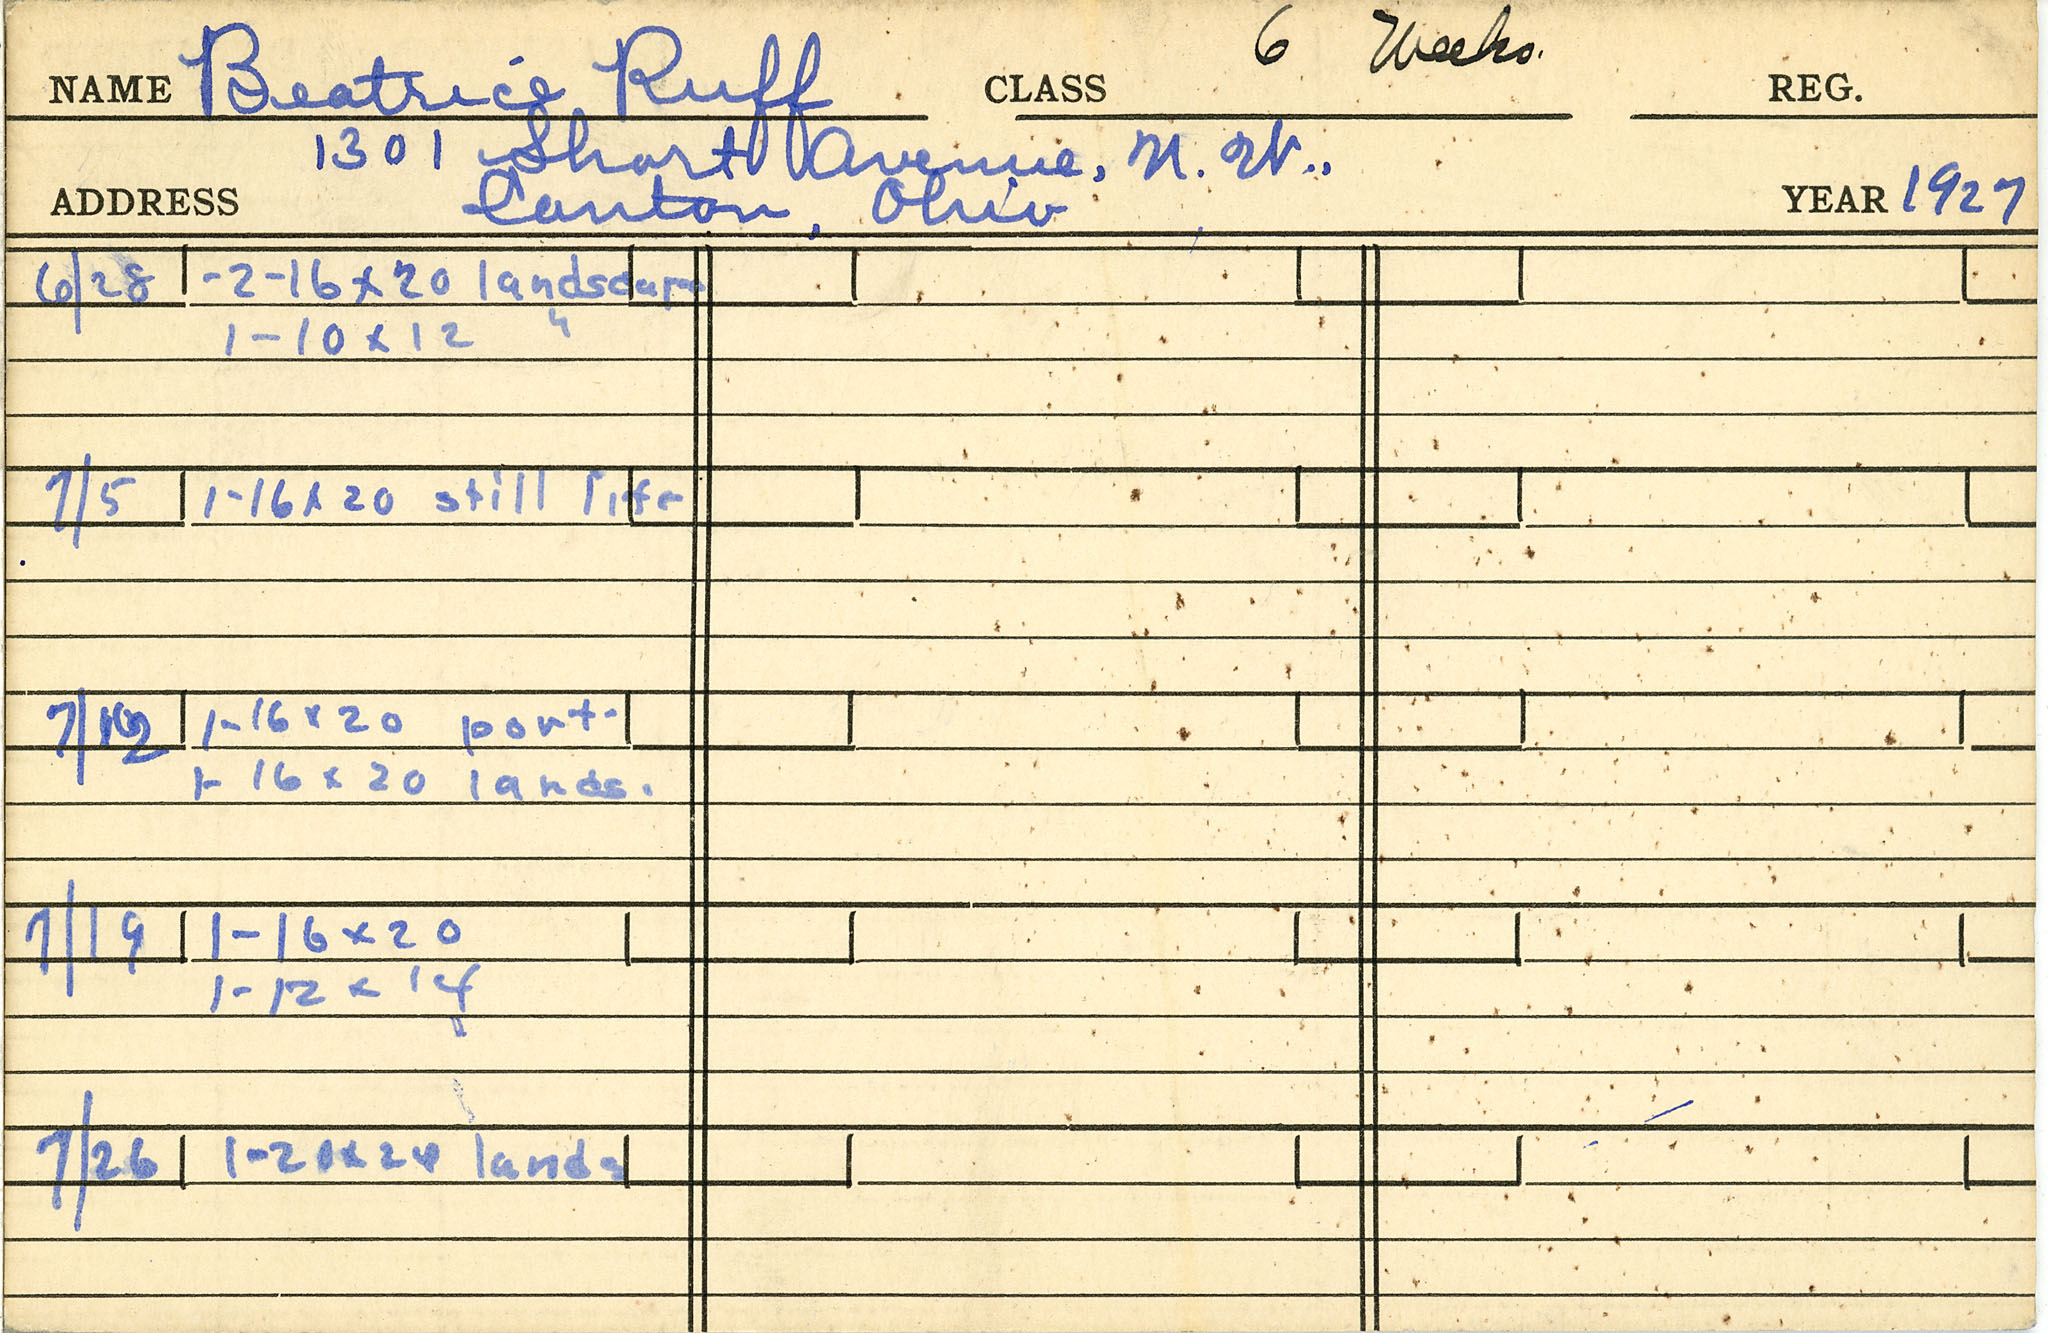 NAME Beatrice Ruff CLASS 6 Weeks. REG.
1301 Short Avenue, N.W.,
ADDRESS Canton, Ohio YEAR 1927
6/28 -2-16x20 landscape
1-10x12 "
7/5 1-16x20 still life
7/12 1-16x20 port.
1-16x20 lands.
7/19 1-16x20
1-12x14
7/26 1-20x24 lands